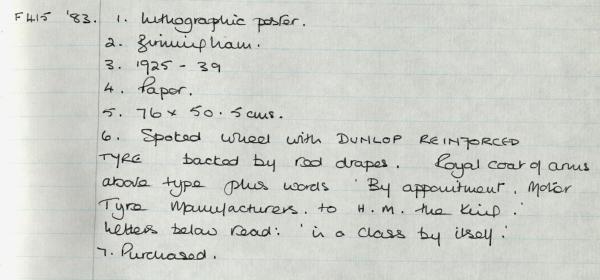 F415 '83. 1. Lithographic poster.
2. Birmingham.
3. 1925 - 39
4. Paper.
5. 76 x 50.5 cms.
6. Spoked wheel with DUNLOP REINFORCED
TYRE backed by red drapes. Royal coat of arms
above type plus words 'By appointment. Motor
Tyre Manufacturers. to H.M. the King.'
Letters below read: 'in a class by itself.'
7. Purchased.